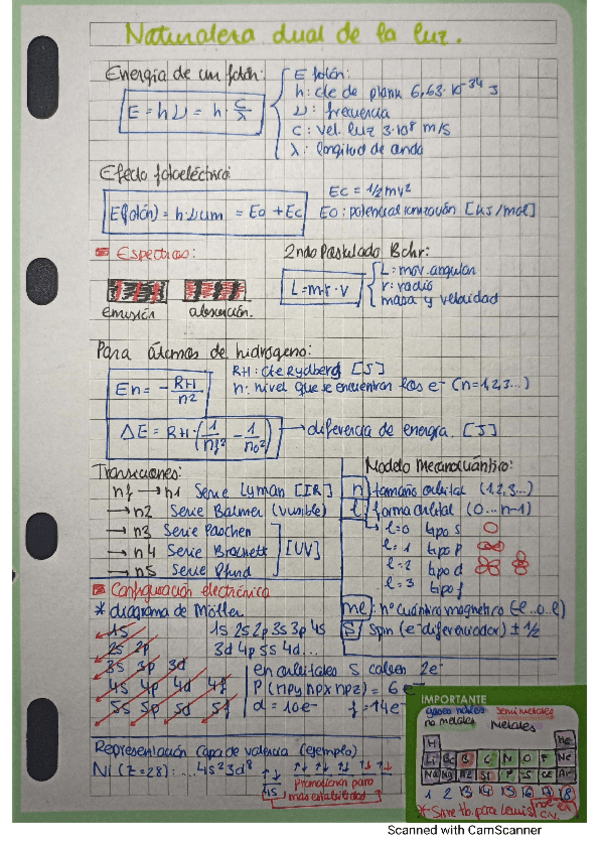 Naturaleza dual de la luz.
Energía de un fotón:
E = hν = h · c/λ
E fotón:
h: cte de plank 6,63·10⁻³⁴ J
ν: frecuencia
c: vel. luz 3·10⁸ m/s
λ: longitud de onda
Efecto fotoeléctrico
E(fotón) = h·νum = Eo + Ec
Ec = 1/2 mv²
Eo: potencial ionización [kJ/mol]
Espectros:
emisión absorción.
2ndo Postulado Bohr:
L = m·r·v
L: mov. angular
r: radio
masa y velocidad
Para átomos de hidrógeno:
En = - RH/n²
RH: cte Rydberg [J]
n: nivel que se encuentran los e⁻ (n=1,2,3...)
ΔE = RH·(1/nf² - 1/no²) → diferencia de energía. [J]
Transiciones:
nf → n1 Serie Lyman [IR]
→ n2 Serie Balmer (visible)
→ n3 Serie Paschen
→ n4 Serie Brackett [UV]
→ n5 Serie Pfund
Modelo Mecanocuántico:
n tamaño orbital (1,2,3...)
l forma orbital (0...n-1)
→ l=0 tipo s
l=1 tipo p
l=2 tipo d
l=3 tipo f
me: nº cuántico magnético (-l..0..l)
S spin (e⁻ diferenciador) ± 1/2
Configuración electrónica
* diagrama de Möller
1s
2s 2p
3s 3p 3d
4s 4p 4d 4f
5s 5p 5d 5f
1s 2s 2p 3s 3p 4s
3d 4p 5s 4d...
en orbitales s caben 2e⁻
P (npy npx npz) = 6e⁻
d = 10e⁻ f = 14e⁻
Representación capa de valencia (ejemplo)
Ni (Z=28): ...4s²3d⁸
↑↓
4s
↑↓ ↑↓ ↑↓ ↑↓ ↑↓
promocionan para
más estabilidad
IMPORTANTE
gases nobles semimetales
no metales Metales
H He
Li Be B C N O F Ne
Na Mg Al Si P S Cl Ar
1 2 13 14 15 16 17 18
* Sirve tb. para Lewis
Scanned with CamScanner